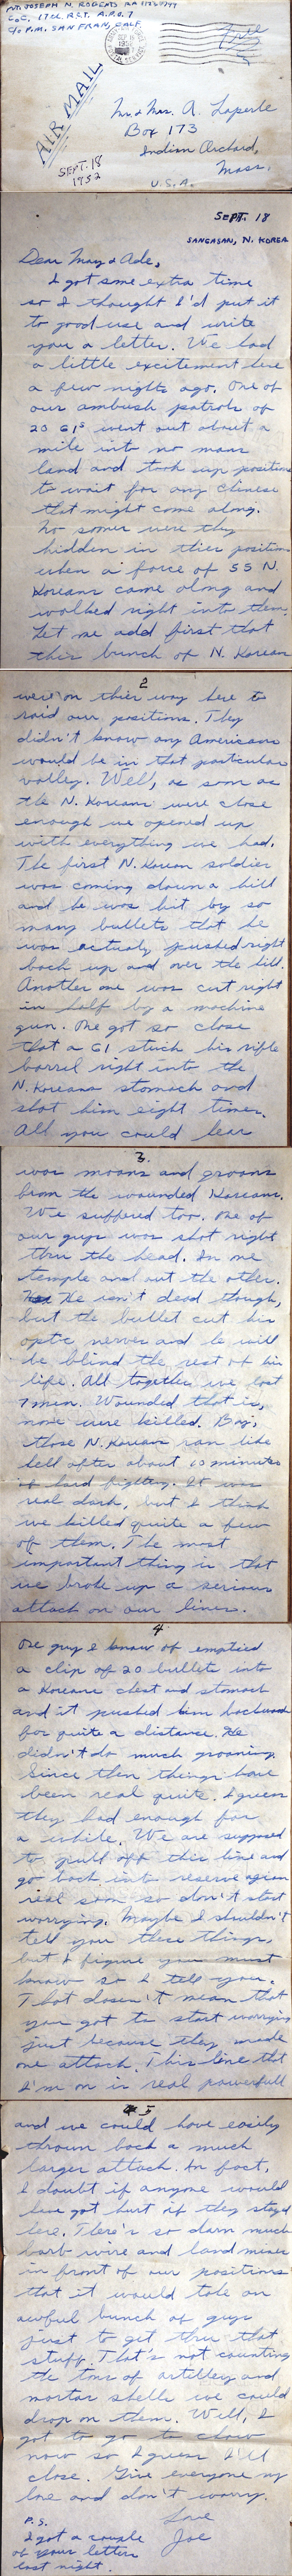 PVT. JOSEPH N. ROBERTS
Co C, 17th R.C.T. A.P.O. 7
C/o P.M. SAN FRAN, CALF.
SEP 18
1952
Free
AIR MAIL
Mr. & Mrs. A. Laperle
Box 173
Indian Orchard,
Mass.
U.S.A.
SEPT. 18
1952
SEPT. 18
SANGASAN, N. KOREA
Dear May & Ade,
I got some extra time
so I thought I'd put it
to good use and write
you a letter. We had
a little excitement here
a few nights ago. One of
our ambush patrols of
20 GI's went out about a
mile into no mans
land and took up positions
to wait for any Chinese
that might come along.
No sooner were they
hidden in thier position
when a force of 55 N.
Koreans came along and
walked right into them.
Let me add first that
this bunch of N. Korean
2
were on thier way here to
raid our positions. They
didn't know any Americans
would be in that particular
valley. Well, as soon as
the N. Koreans were close
enough we opened up
with everything we had.
The first N. Korean soldier
was coming down a hill
and he was hit by so
many bullets that he
was actualy pushed right
back up and over the hill.
Another one was cut right
in half by a machine
gun. One got so close
that a GI stuck his rifle
barrel right into the
N. Koreans stomach and
shot him eight times.
All you could hear
3.
was moans and groans
from the wounded Koreans.
We suffered too. One of
our guys was shot right
thru the head. In one
temple and out the other.
He isn't dead though,
but the bullet cut his
optic nerves and he will
be blind the rest of his
life. All together we lost
7 men. Wounded that is,
none were killed. Boy,
those N. Koreans ran like
hell after about 10 minutes
of hard fighting. It was
real dark, but I think
we killed quite a few
of them. The most
important thing is that
we broke up a serious
attack on our lines.
4
One guy I know of emptied
a clip of 20 bullets into
a Koreans chest and stomach
and it pushed him backward
for quite a distance. He
didn't do much groaning.
Since then things have
been real quite. I guess
they had enough for
a while. We are supposed
to pull off this line and
go back into reserve again
real soon so don't start
worrying. Maybe I shouldn't
tell you these things,
but I figure you must
know so I tell you.
That doesn't mean that
you got to start worrying
just because they made
one attack. This line that
I'm on is real powerfull
5
and we could have easily
thrown back a much
larger attack. In fact,
I doubt if anyone would
have got hurt if they stayed
here. There's so darn much
barb wire and land mines
in front of our positions
that it would take an
awful bunch of guys
just to get thru that
stuff. That's not counting
the tons of artillery and
mortar shells we could
drop on them. Well, I
got to go to chow
now so I guess I'll
close. Give everyone my
love and don't worry.
Love
Joe
P.S.
I got a couple
of your letters
last night.